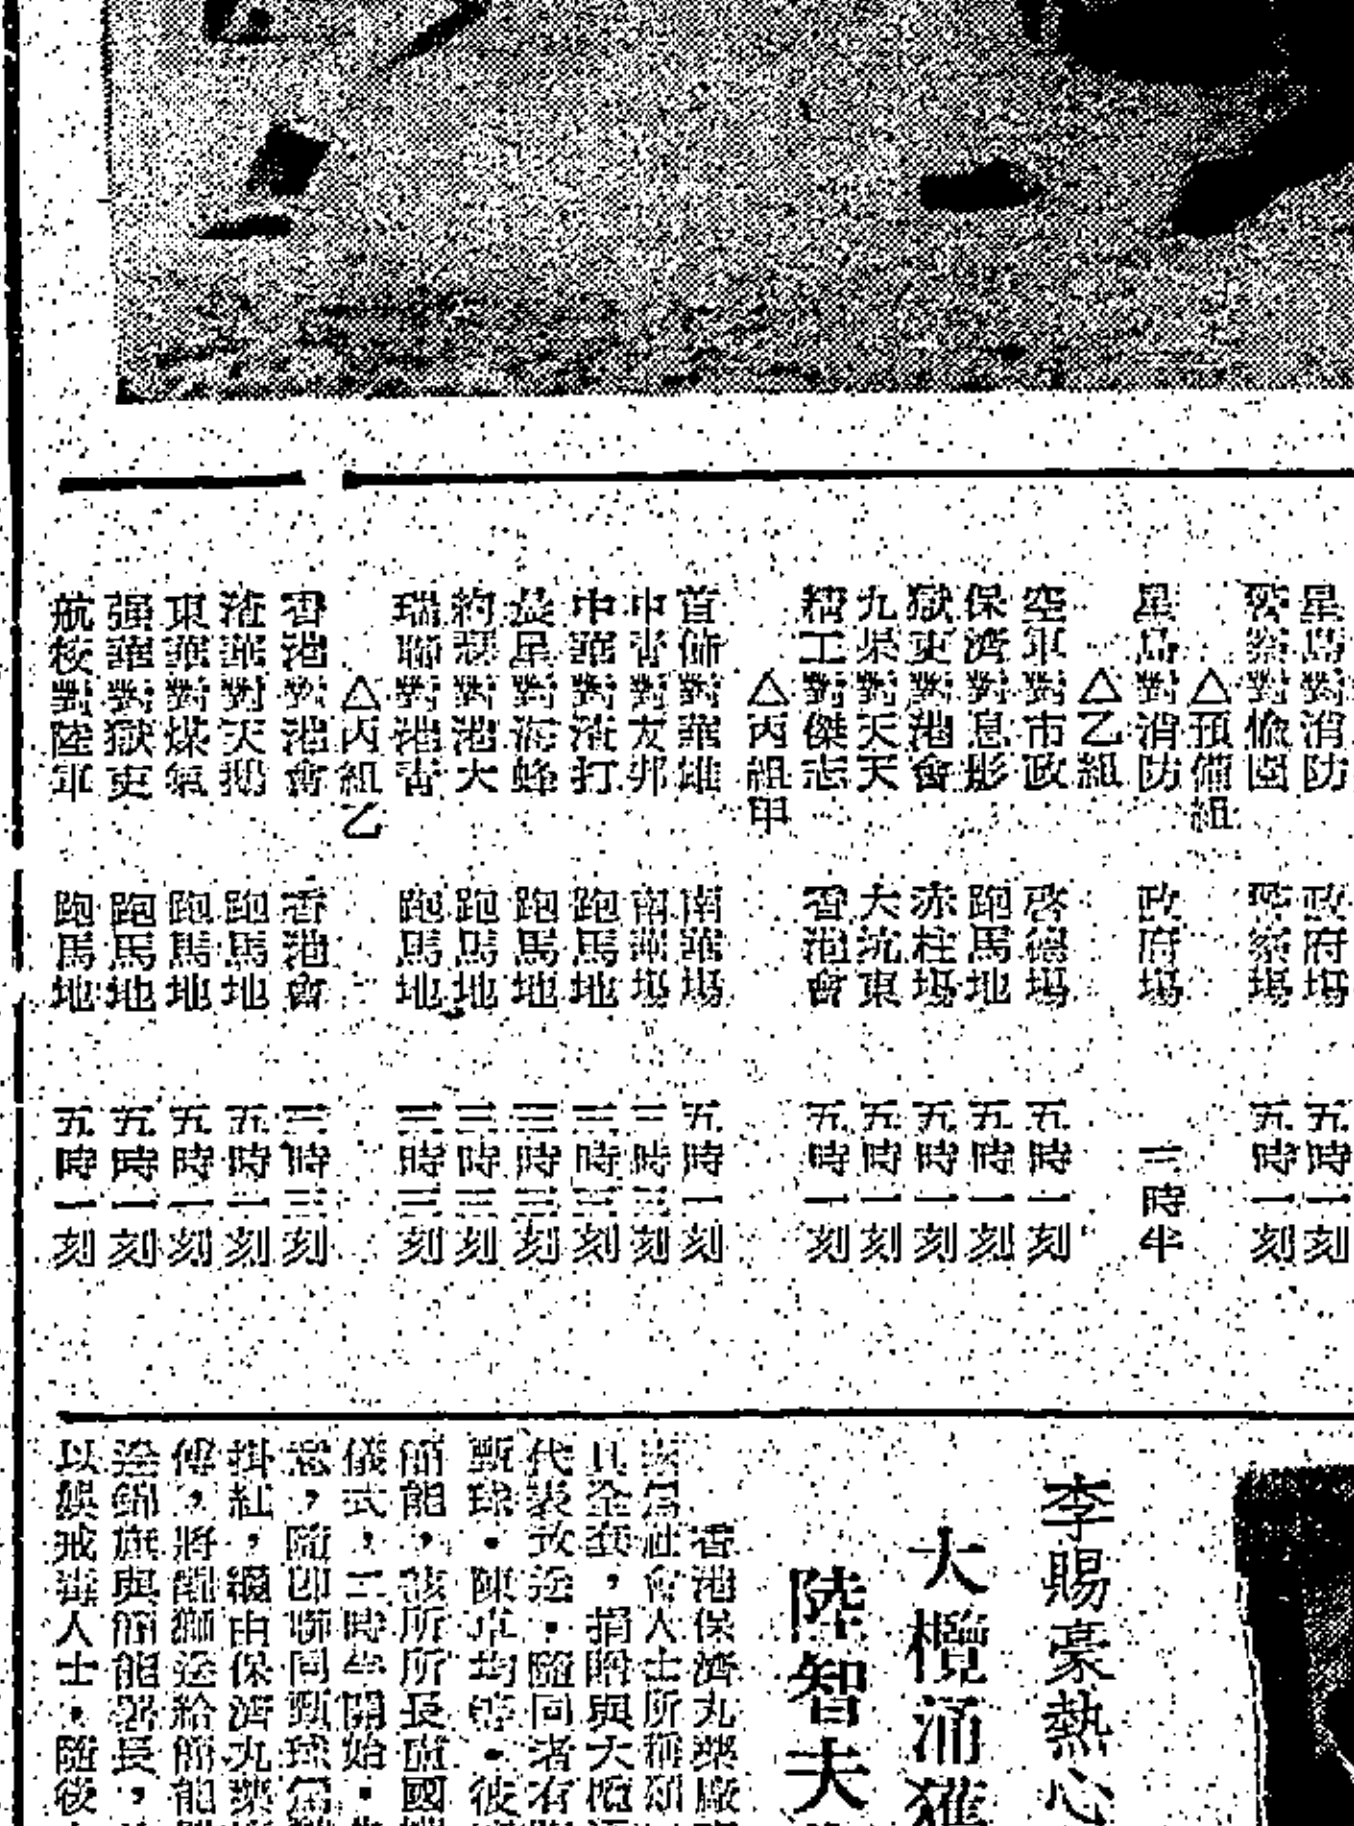 星島對消防 政府場 五時一刻
警察對愉園 警察場 五時一刻
△預備組
星島對消防 政府場 三時半
△乙組
空軍對市政 啓德場 五時一刻
保濟對息影 跑馬地 五時一刻
獄吏對池會 赤柱場 五時一刻
九巢對天天 大坑東 五時一刻
精工對傑志 香港會 五時一刻
△丙組甲
首師對華雄 南華場 五時一刻
中青對友邦 南華場 三時三刻
中華對渣打 跑馬地 三時三刻
晨星對海蜂 跑馬地 三時三刻
約瑟對港大 跑馬地 三時三刻
瑞聯對港青 跑馬地 三時三刻
△丙組乙
香港對池會 香港會 三時三刻
渣華對天鵝 跑馬地 五時一刻
東華對煤氣 跑馬地 五時一刻
强華對獄吏 跑馬地 五時一刻
航校對陸軍 跑馬地 五時一刻
李賜豪熱心
大欖涌獲
陸智夫
香港保濟丸藥廠
素爲社會人士所稱頌
具全套，捐贈與大欖涌
代表致送・隨同者有
甄球・陳卓均等・彼
簡能，該所所長盧國
儀式，二時半開始・
意，隨卽聯同甄球爲
掛紅，繼由保濟丸藥
傅，將醒獅送給簡能
送錦旗與簡能署長，
以娛戒毒人士・隨後